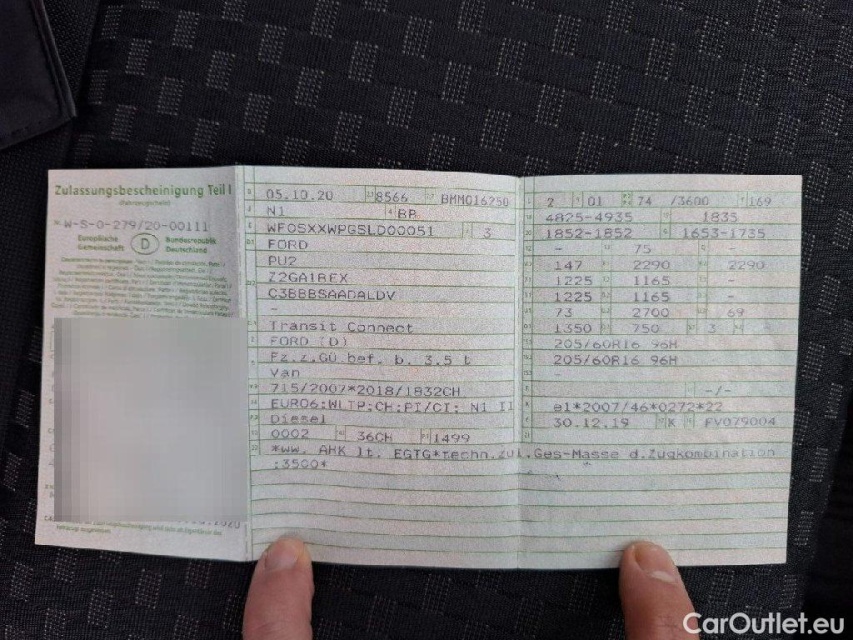 Zulassungsbescheinigung Teil I
(Fahrzeugschein)
Nr. W-S-0-279/20-00111
Europäische Gemeinschaft D Bundesrepublik Deutschland
05.10.20 8566 BMM016250
N1 BB
WF0SXXWPGSLD00051 3
FORD
PU2
Z2GA1BEX
C3BBBSAADALDV
-
Transit Connect
FORD (D)
Fz.z.Gü.bef. b. 3,5 t
Van
715/2007*2018/1832CH
EURO6;WLTP;CH;PI/CI; N1 II
Diesel
0002 36CH 1499
2 01 74 /3600 169
4825-4935 1835
1852-1852 1653-1735
- 75 -
147 2290 2290
1225 1165 -
1225 1165 -
73 2700 69
1350 750 3 -
205/60R16 96H
205/60R16 96H
-
-/-
e1*2007/46*0272*22
30.12.19 K FV079004
*ww. AHK lt. EGTG*techn.zul.Ges-Masse d.Zugkombination
:3500*
CarOutlet.eu